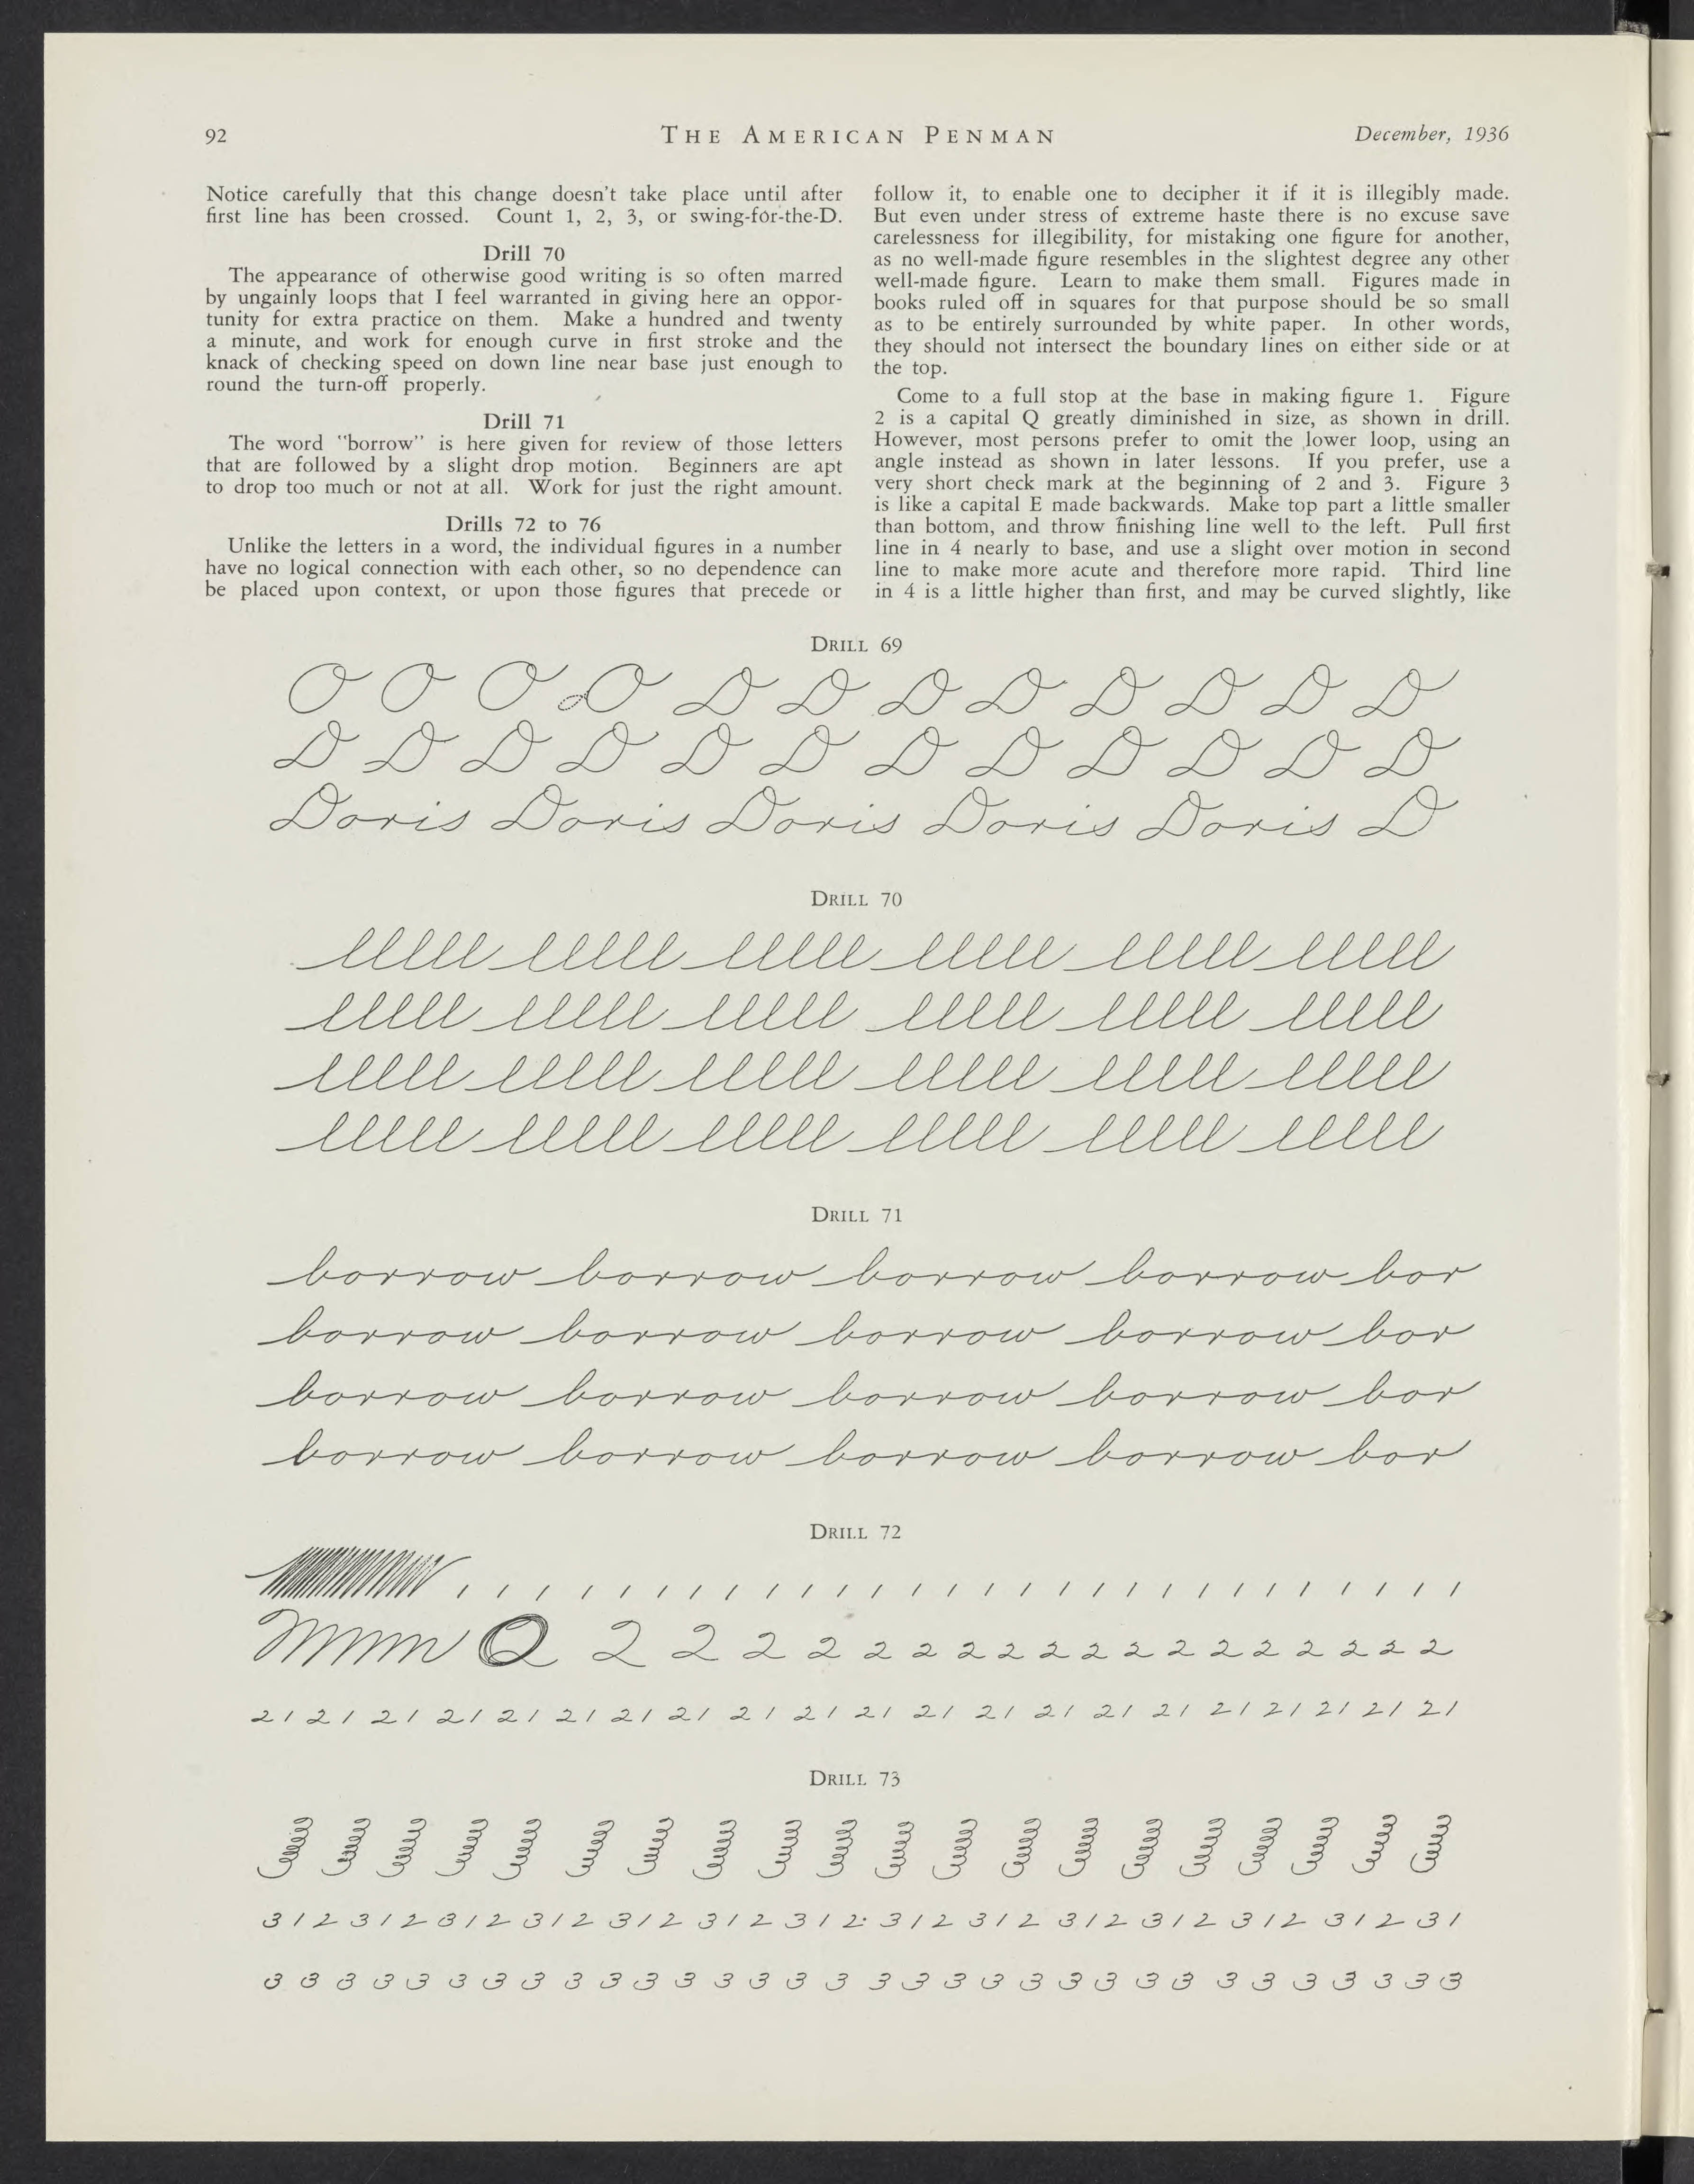 92
THE AMERICAN PENMAN
December, 1936
Notice carefully that this change doesn't take place until after
first line has been crossed. Count 1, 2, 3, or swing-for-the-D.
Drill 70
The appearance of otherwise good writing is so often marred
by ungainly loops that I feel warranted in giving here an oppor-
tunity for extra practice on them. Make a hundred and twenty
a minute, and work for enough curve in first stroke and the
knack of checking speed on down line near base just enough to
round the turn-off properly.
Drill 71
The word "borrow" is here given for review of those letters
that are followed by a slight drop motion. Beginners are apt
to drop too much or not at all. Work for just the right amount.
Drills 72 to 76
Unlike the letters in a word, the individual figures in a number
have no logical connection with each other, so no dependence can
be placed upon context, or upon those figures that precede or
follow it, to enable one to decipher it if it is illegibly made.
But even under stress of extreme haste there is no excuse save
carelessness for illegibility, for mistaking one figure for another,
as no well-made figure resembles in the slightest degree any other
well-made figure. Learn to make them small. Figures made in
books ruled off in squares for that purpose should be so small
as to be entirely surrounded by white paper. In other words,
they should not intersect the boundary lines on either side or at
the top.
Come to a full stop at the base in making figure 1. Figure
2 is a capital Q greatly diminished in size, as shown in drill.
However, most persons prefer to omit the lower loop, using an
angle instead as shown in later lessons. If you prefer, use a
very short check mark at the beginning of 2 and 3. Figure 3
is like a capital E made backwards. Make top part a little smaller
than bottom, and throw finishing line well to the left. Pull first
line in 4 nearly to base, and use a slight over motion in second
line to make more acute and therefore more rapid. Third line
in 4 is a little higher than first, and may be curved slightly, like
DRILL 69
O O O O D D D D D D D D
D D D D D D D D D D D D
Doris Doris Doris Doris Doris D
DRILL 70
lllll lllll lllll lllll lllll lllll
lllll lllll lllll lllll lllll lllll
lllll lllll lllll lllll lllll lllll
lllll lllll lllll lllll lllll lllll
DRILL 71
borrow borrow borrow borrow bor
borrow borrow borrow borrow bor
borrow borrow borrow borrow bor
borrow borrow borrow borrow bor
DRILL 72
1 1 1 1 1 1 1 1 1 1 1 1 1 1 1 1 1 1 1 1 1 1 1 1 1 1 1 1
Q 2 2 2 2 2 2 2 2 2 2 2 2 2 2 2 2 2 2
21 21 21 21 21 21 21 21 21 21 21 21 21 21 21 21 21 21 21 21 21
DRILL 73
312 312 312 312 312 312 312 312 312 312 312 312 312 31
3 3 3 3 3 3 3 3 3 3 3 3 3 3 3 3 3 3 3 3 3 3 3 3 3 3 3 3 3 3 3 3